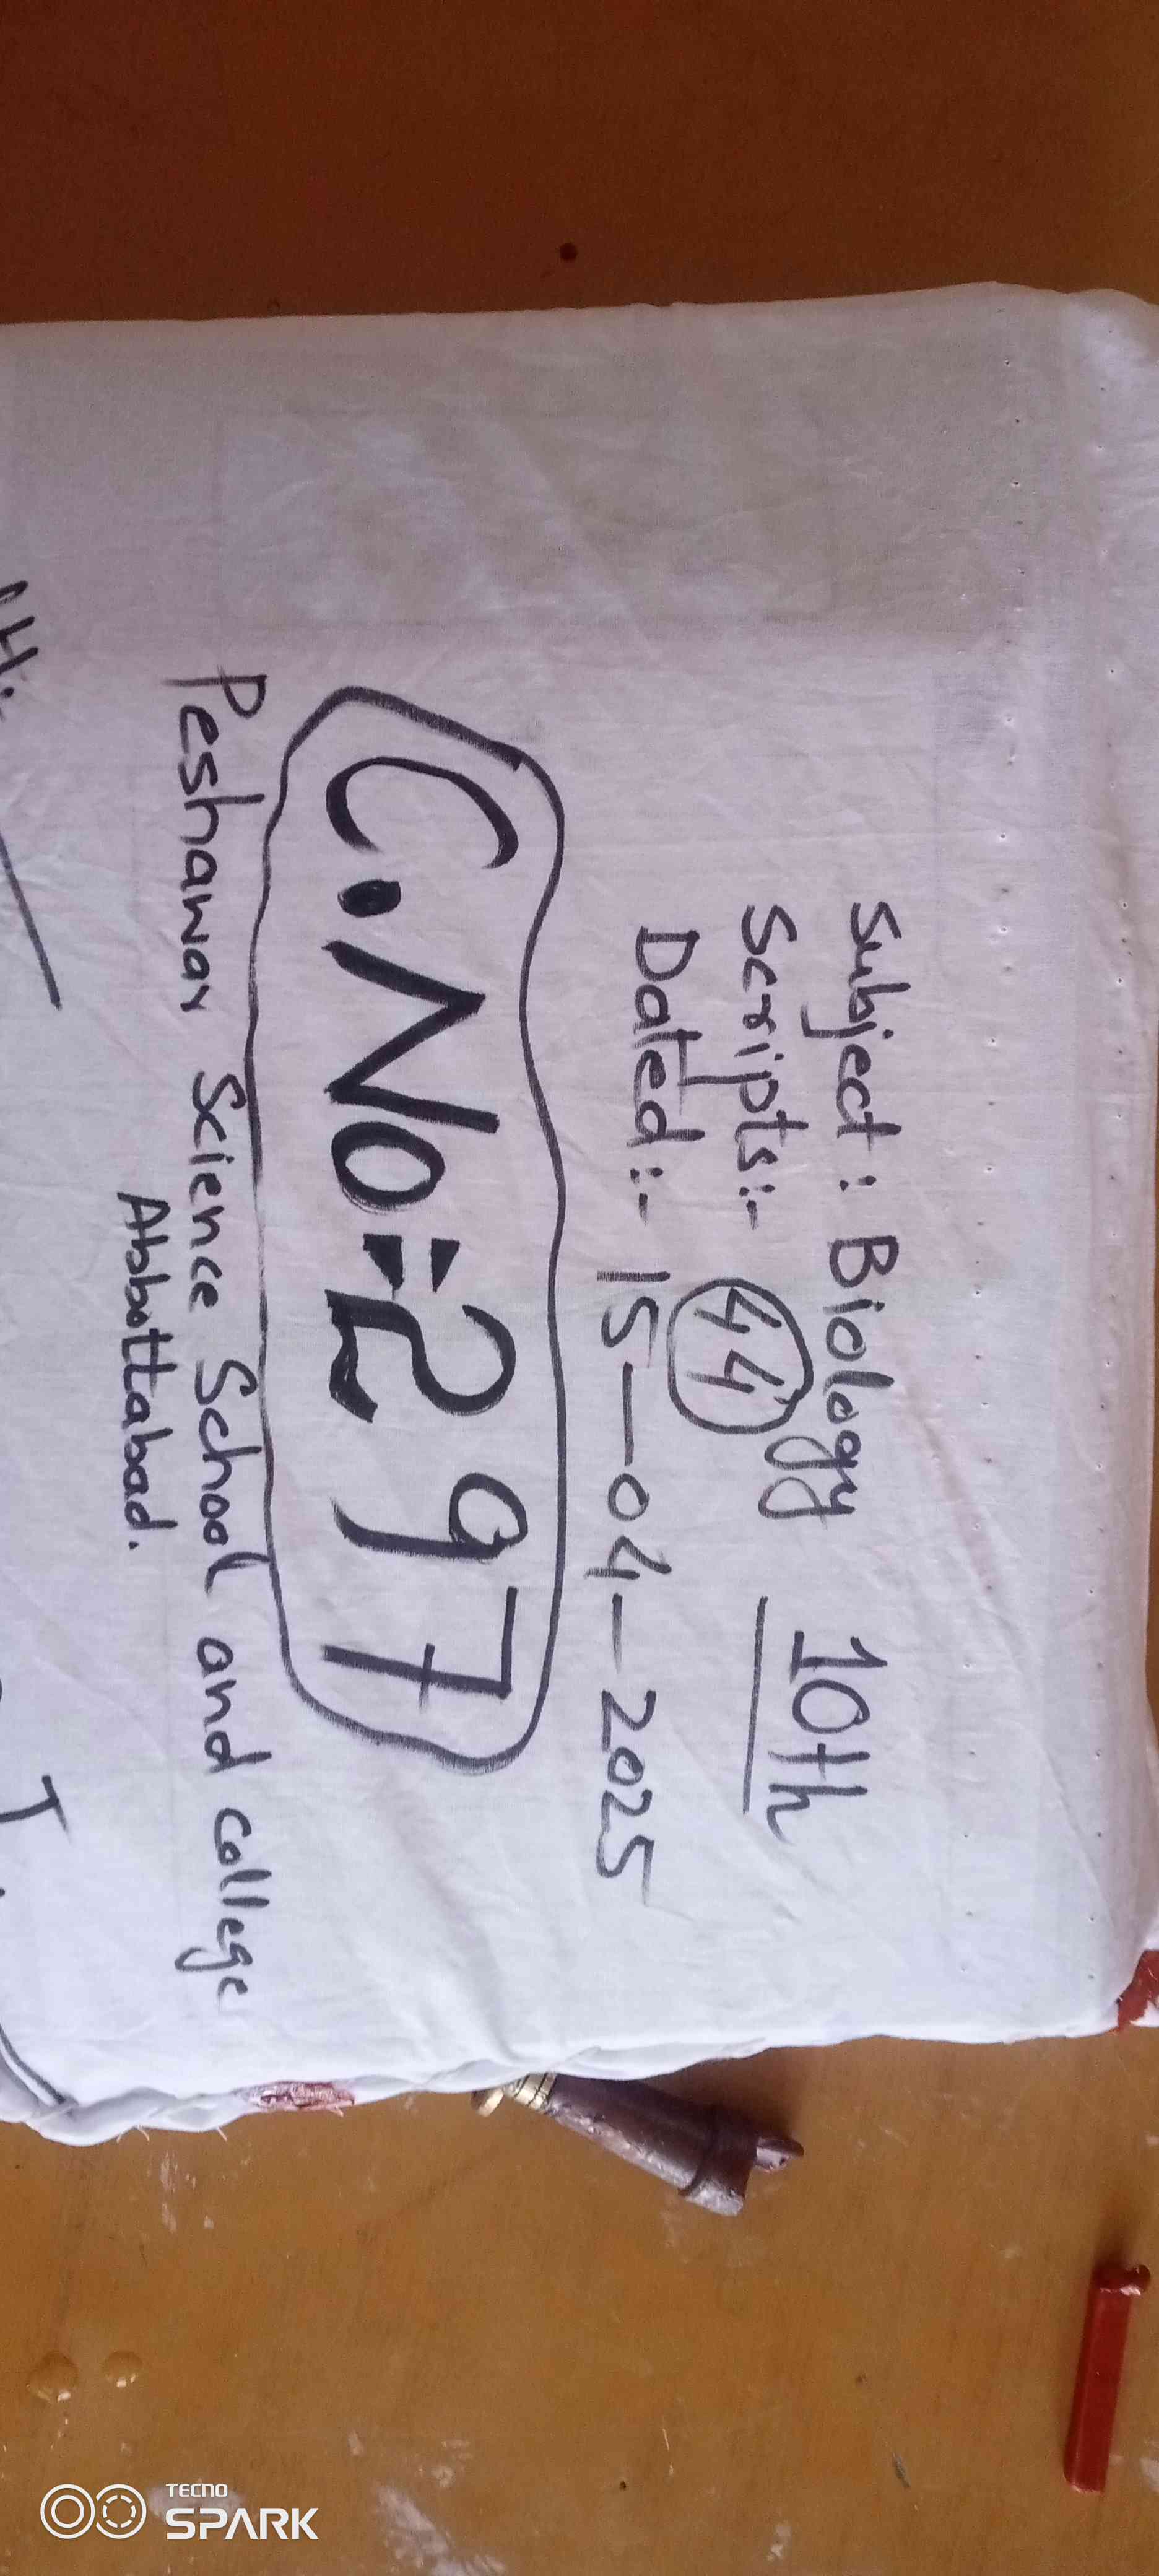 Subject: Biology 10th
Scripts:- 44
Dated:- 15-04-2025
C.No:297
Peshawar Science School and college
Abbottabad.
TECNO
SPARK